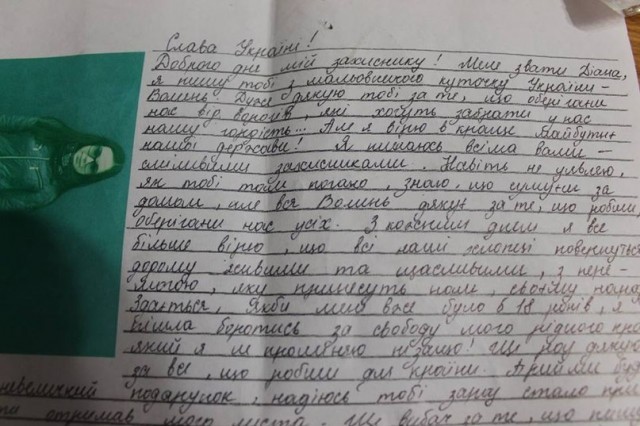 Слава Україні!
Доброго дня мій захиснику! Мене звати Діана,
я пишу тобі з мальовничого куточку України -
Волинь! Дуже дякую тобі за те, що оберігаєш
нас від ворогів, які хочуть забрати у нас
нашу гордість... Але я вірю в краще майбутнє
нашої держави! Я пишаюсь всіма вами -
сміливими захисниками. Навіть не уявляю,
як тобі там погано, знаю, що сумуєш за
домом, але вся Волинь дякує за те, що робиш,
оберігаєш нас усіх. З кожним днем я все
більше вірю, що всі наші хлопці повернуться
додому живими та щасливими, з пере-
могою, яку принесуть нам, своєму
Здається, якби мені вже було б 18 років, я б
пішла боротись за свободу мого рідного
який я не проміняю нізащо! Ще раз дякую
за все, що робиш для країни. Прийми
невеличкий подарунок, надіюсь тобі зараз стало
отримав мого листа. Ще вибач за те, що